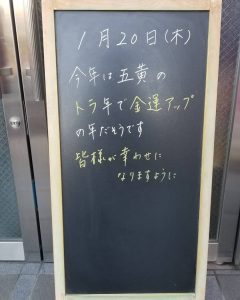 1月20日(木)
今年は五黄の
トラ年で金運アップ
の年だそうです
皆様が幸わせに
なりますように